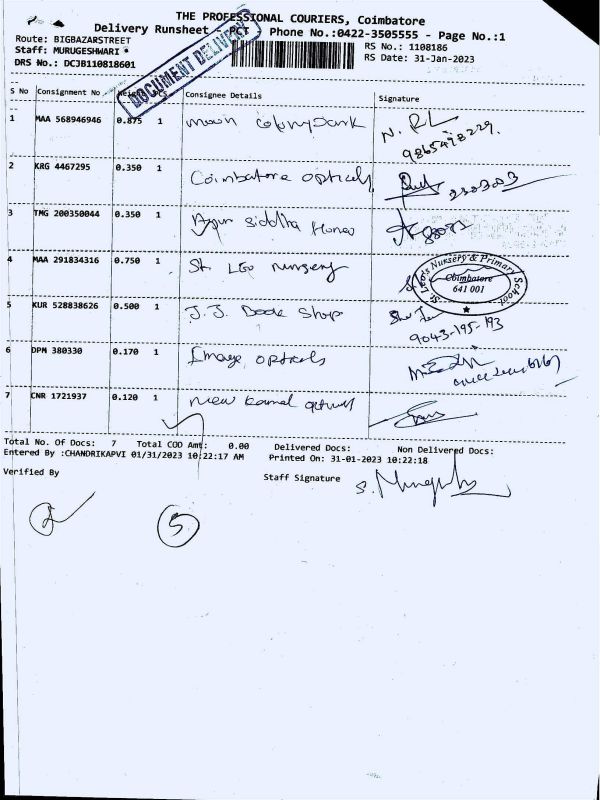 THE PROFESSIONAL COURIERS, Coimbatore
Delivery Runsheet - PCT Phone No.:0422-3505555 - Page No.:1
Route: BIGBAZARSTREET
RS No.: 1108186
Staff: MURUGESHWARI *
RS Date: 31-Jan-2023
DRS No.: DCJB110818601
DOCUMENT DELIVERY
S No Consignment No Weight Pcs Consignee Details Signature
1 MAA 568946946 0.875 1
N. RL
2 KRG 4467295 0.350 1 Coimbatore opticals
3 TMG 200350044 0.350 1 siddha
4 MAA 291834316 0.750 1 St. Leo nursery
St. Leo's Nursery & Primary School
Coimbatore
641 001
5 KUR 528838626 0.500 1 J.J. Book Shop
9043-195-193
6 DPM 380330 0.170 1 Image opticals
7 CNR 1721937 0.120 1 New kamal optical
Total No. Of Docs: 7 Total COD Amt: 0.00 Delivered Docs: Non Delivered Docs:
Entered By :CHANDRIKAPVI 01/31/2023 10:22:17 AM Printed On: 31-01-2023 10:22:18
Verified By Staff Signature
5